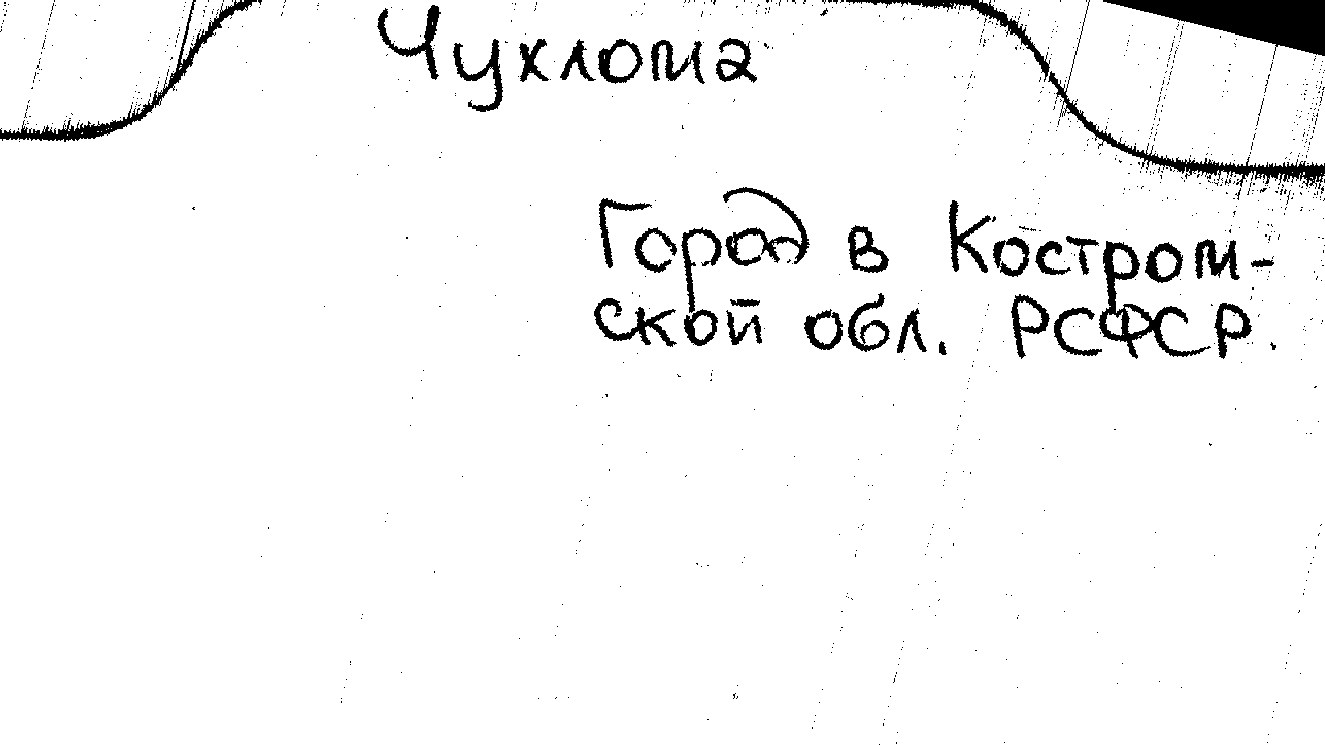 Чухлома
Город в Костром-
ской обл. РСФСР.